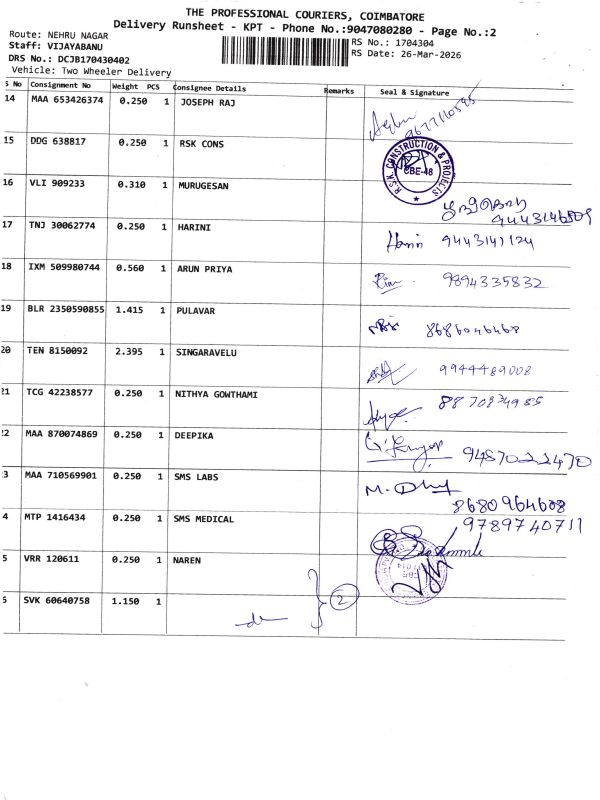 THE PROFESSIONAL COURIERS, COIMBATORE
Delivery Runsheet - KPT - Phone No.:9047080280 - Page No.:2
Route: NEHRU NAGAR
RS No.: 1704304
Staff: VIJAYABANU
RS Date: 26-Mar-2026
DRS No.: DCJB170430402
Vehicle: Two Wheeler Delivery
S No Consignment No Weight PCS Consignee Details Remarks Seal & Signature
14 MAA 653426374 0.250 1 JOSEPH RAJ
15 DDG 638817 0.250 1 RSK CONS
R.S.K. CONSTRUCTION & PROJECTS
CBE-48
16 VLI 909233 0.310 1 MURUGESAN
17 TNJ 30062774 0.250 1 HARINI Harini 9443141124
18 IXM 509980744 0.560 1 ARUN PRIYA 9894335832
19 BLR 2350590855 1.415 1 PULAVAR 8686046468
20 TEN 8150092 2.395 1 SINGARAVELU 9944489008
21 TCG 42238577 0.250 1 NITHYA GOWTHAMI
22 MAA 870074869 0.250 1 DEEPIKA 9487022470
3 MAA 710569901 0.250 1 SMS LABS
8680964608
4 MTP 1416434 0.250 1 SMS MEDICAL 9789740711
5 VRR 120611 0.250 1 NAREN
SVK 60640758 1.150 1 2